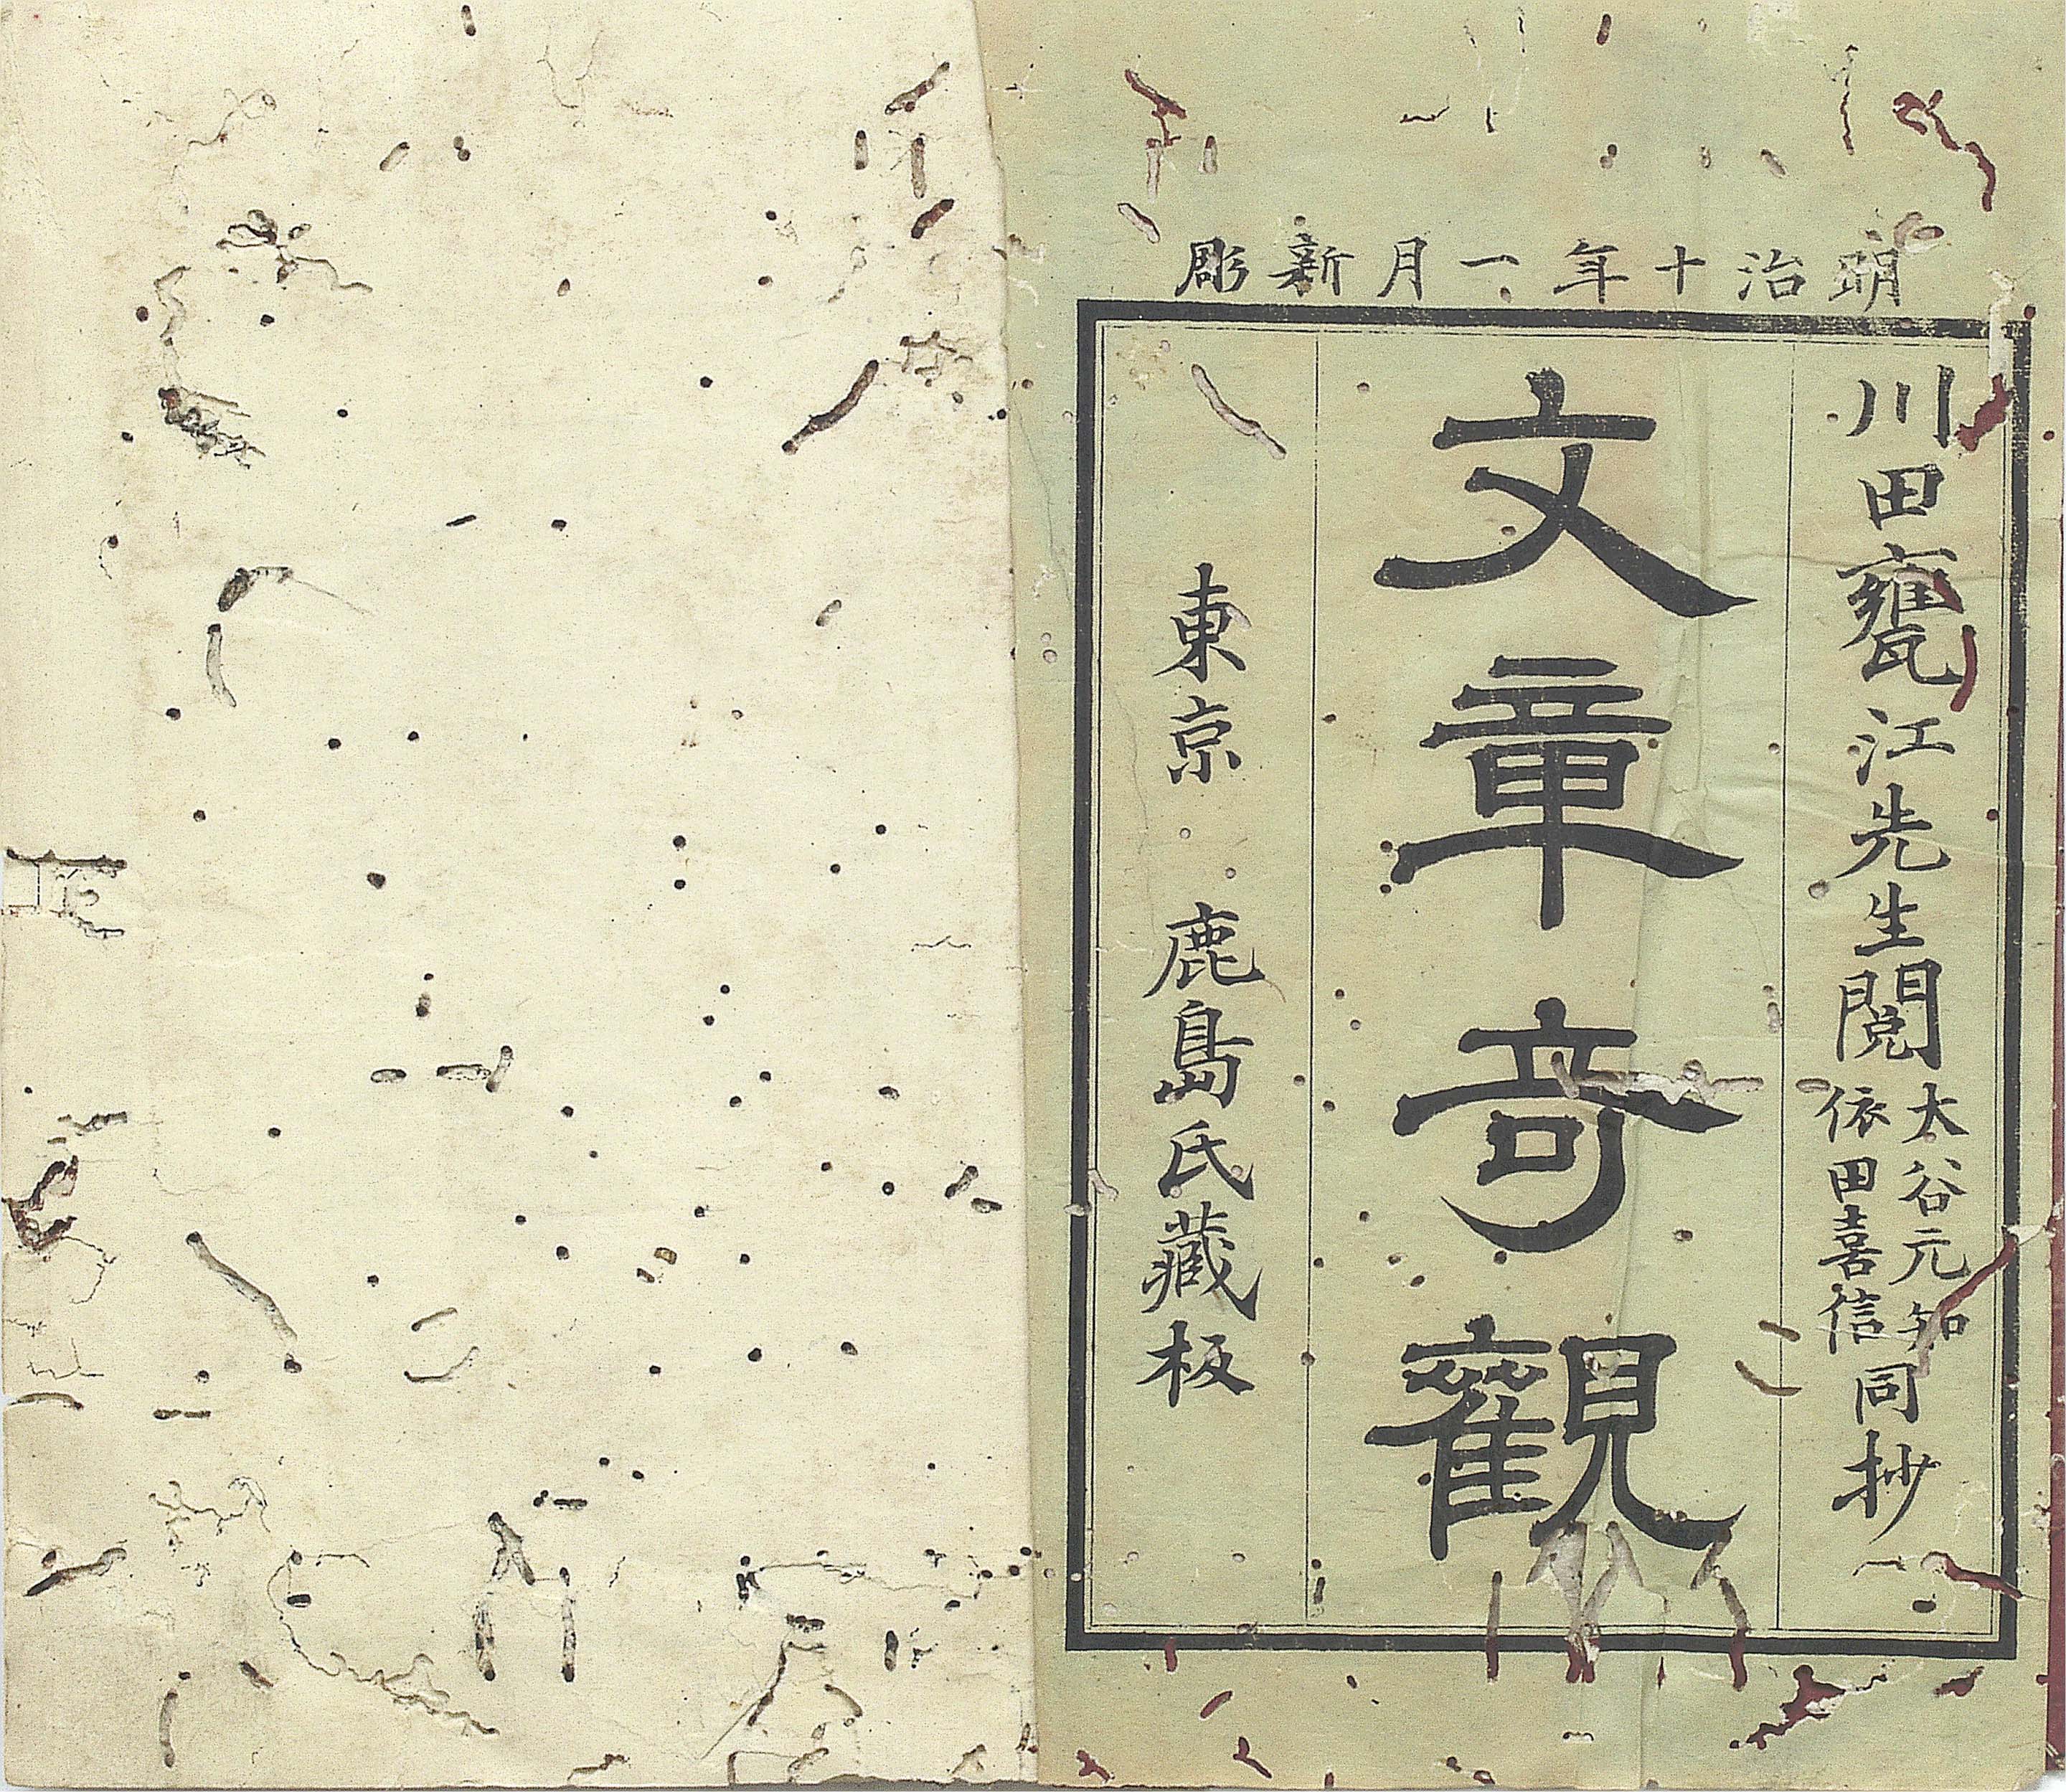 明治十年一月新彫
川田甕江先生閲
大谷元知
依田喜信
同抄
文章奇觀
東京 鹿島氏藏板